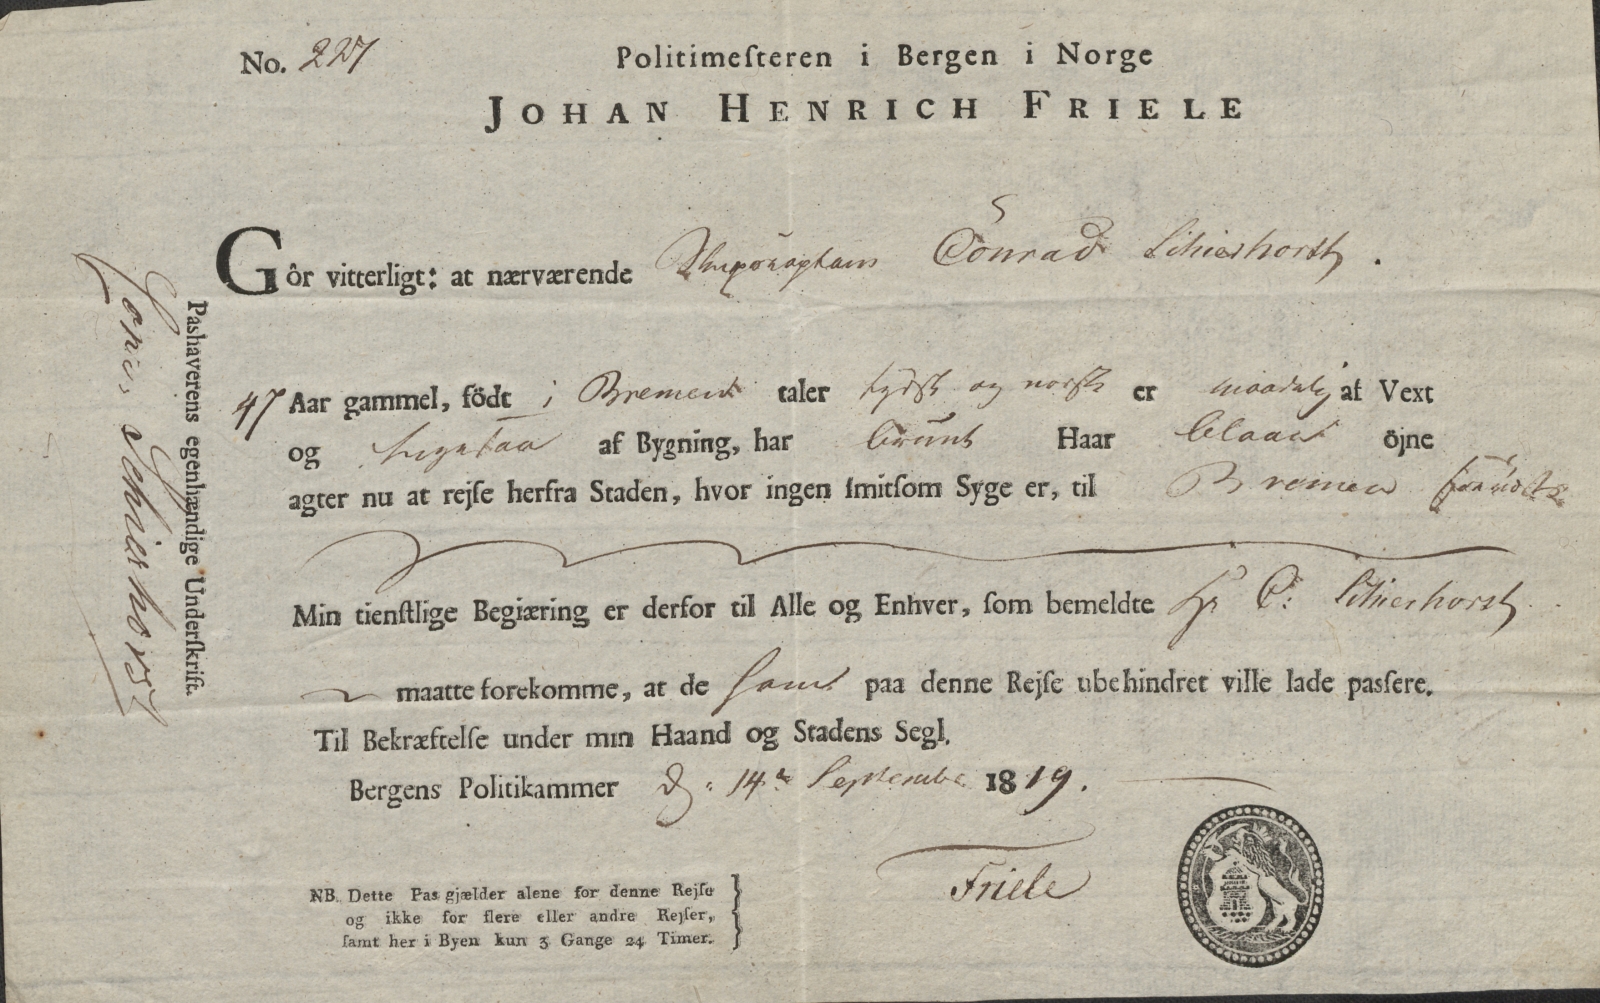 No. 227
Politimeſteren i Bergen i Norge
JOHAN HENRICH FRIELE
Gôr vitterligt: at nærværende Conrad Schierhorst.
47 Aar gammel, födt i Bremen taler tydsk og norsk er maadelig af Vext
og af Bygning, har bruunt Haar blaae öjne
agter nu at rejſe herfra Staden, hvor ingen ſmitſom Syge er, til Bremen
Min tienſtlige Begiæring er derfor til Alle og Enhver, ſom bemeldte Hr C: Schierhorst
maatte forekomme, at de ham paa denne Rejſe ubehindret ville lade paſſere.
Til Bekræftelſe under min Haand og Stadens Segl.
Bergens Politikammer d: 14de September 1819.
Friele
NB. Dette Pas gjælder alene for denne Rejſe
og ikke for flere eller andre Rejſer,
ſamt her i Byen kun 3 Gange 24 Timer.
Pashaverens egenhændige Underſkrift.
Schierhorst